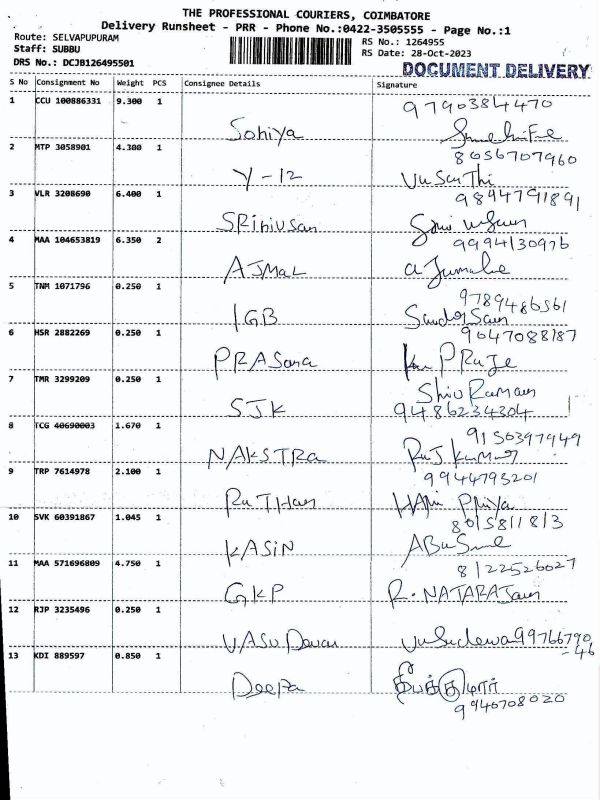 THE PROFESSIONAL COURIERS, COIMBATORE
Delivery Runsheet - PRR - Phone No.:0422-3505555 - Page No.:1
Route: SELVAPUPURAM
RS No.: 1264955
Staff: SUBBU
RS Date: 28-Oct-2023
DRS No.: DCJB126495501
DOCUMENT DELIVERY
S No Consignment No Weight PCS Consignee Details Signature
1 CCU 100886331 9.300 1 9790384470
Sohiya
2 MTP 3058901 4.300 1 8056707960
Y-12
3 VLR 3208690 6.400 1 9894791891
SRinivsan
4 MAA 104653819 6.350 2 9994130976
AJMAL
5 TNM 1071796 0.250 1 9789486561
IGB
6 HSR 2882269 0.250 1 9047088187
PRASana
7 TMR 3299209 0.250 1 Shiv Raman
SJK 9486234304
8 TCG 40690003 1.670 1 9150397949
NAKSTRa RaJ kumar
9 TRP 7614978 2.100 1 9944793201
HARi PRiya
10 SVK 60391867 1.045 1 8015811813
KASiN
11 MAA 571696809 4.750 1 8122526027
GKP R. NATARAJan
12 RJP 3235496 0.250 1
VASU Devan Vasudevan 99766790
-46
13 KDI 889597 0.850 1
Deepa
9940708020